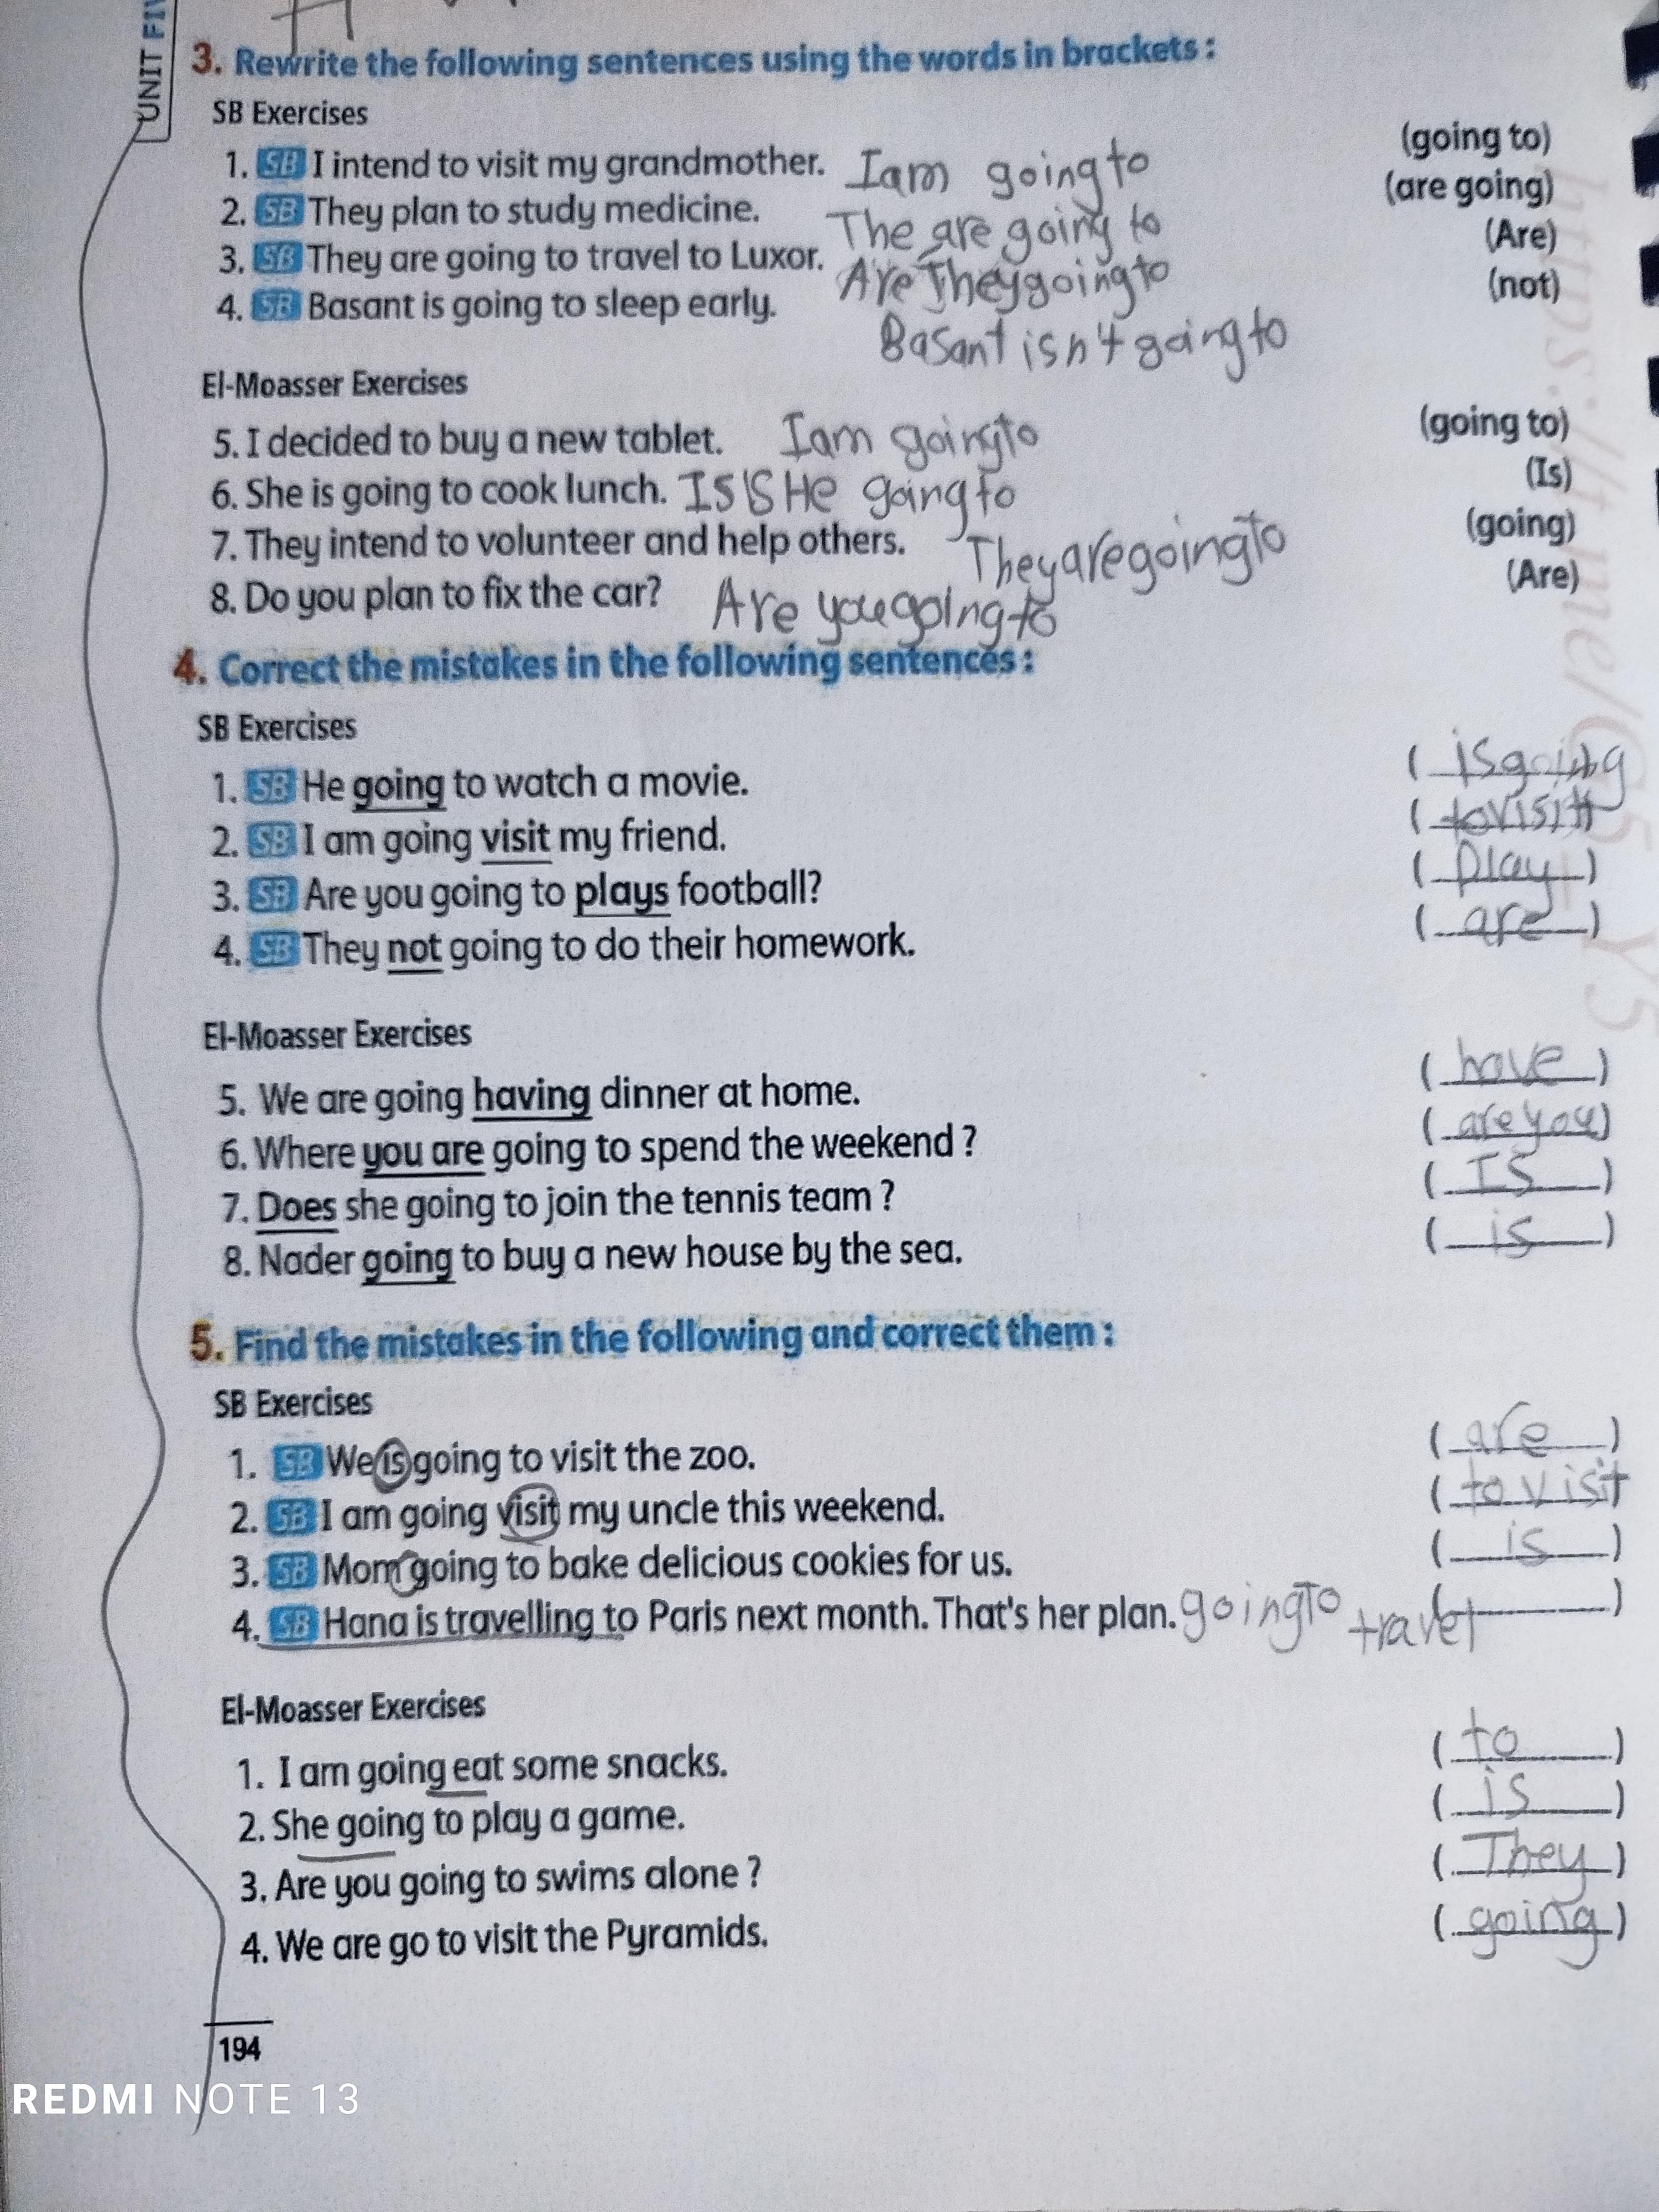 UNIT FIV
3. Rewrite the following sentences using the words in brackets :
SB Exercises
1. SB I intend to visit my grandmother. I am going to (going to)
2. SB They plan to study medicine. The are going to (are going)
3. SB They are going to travel to Luxor. Are They going to (Are)
4. SB Basant is going to sleep early. (not)
Basant isn't going to
El-Moasser Exercises
5. I decided to buy a new tablet. I am going to (going to)
6. She is going to cook lunch. IS SHe going to (Is)
7. They intend to volunteer and help others. They are going to (going)
8. Do you plan to fix the car? Are you going to (Are)
4. Correct the mistakes in the following sentences :
SB Exercises
1. SB He going to watch a movie. ( is going
2. SB I am going visit my friend. ( to visit
3. SB Are you going to plays football? ( Play )
4. SB They not going to do their homework. ( are )
El-Moasser Exercises
5. We are going having dinner at home. ( have )
6. Where you are going to spend the weekend ? ( are you )
7. Does she going to join the tennis team ? ( IS )
8. Nader going to buy a new house by the sea. ( is )
5. Find the mistakes in the following and correct them :
SB Exercises
1. SB We is going to visit the zoo. ( are )
2. SB I am going visit my uncle this weekend. ( to visit
3. SB Mom going to bake delicious cookies for us. ( is )
4. SB Hana is travelling to Paris next month. That's her plan. going To travel ( )
El-Moasser Exercises
1. I am going eat some snacks. ( to )
2. She going to play a game. ( is )
3. Are you going to swims alone ? ( They )
4. We are go to visit the Pyramids. ( going )
194
REDMI NOTE 13